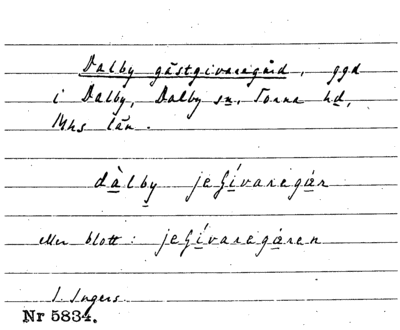 Dalby gästgivaregård, ggd
i Dalby, Dalby sn, Torna hd,
Mhs län.
dàlby jeʃívaregár
eller blott: jeʃívaregáren
I. Ingers
Nr 5834.